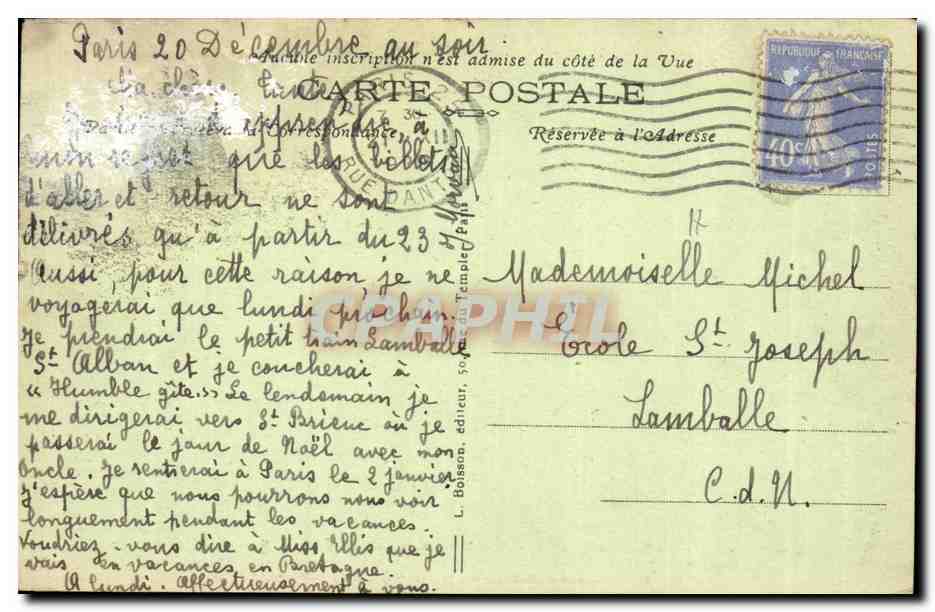 Paris 20 Décembre au soir.
Aucune inscription n'est admise du côté de la Vue
CARTE POSTALE
Correspondance
Réservée à l'Adresse
RÉPUBLIQUE FRANÇAISE
40c
POSTES
PARIS
RUE DANT
que les billets
d'aller et retour ne sont
délivrés qu'à partir du 23
Aussi, pour cette raison je ne
voyagerai que lundi prochain.
Je prendrai le petit train Lamballe
St Alban et je coucherai à
« Humble gîte.» Le lendemain je
me dirigerai vers St Brieuc où je
passerai le jour de Noël avec mon
Oncle. Je rentrerai à Paris le 2 janvier
J'espère que nous pourrons nous voir
longuement pendant les vacances.
Voudriez-vous dire à Miss Ellis que je
vais en vacances en Bretagne.
A lundi. Affectueusement à vous.
L. Boisson, éditeur, 50, rue du Temple, Paris
Mademoiselle Michel
École St Joseph
Lamballe
C.d.N.
CPAPHIL